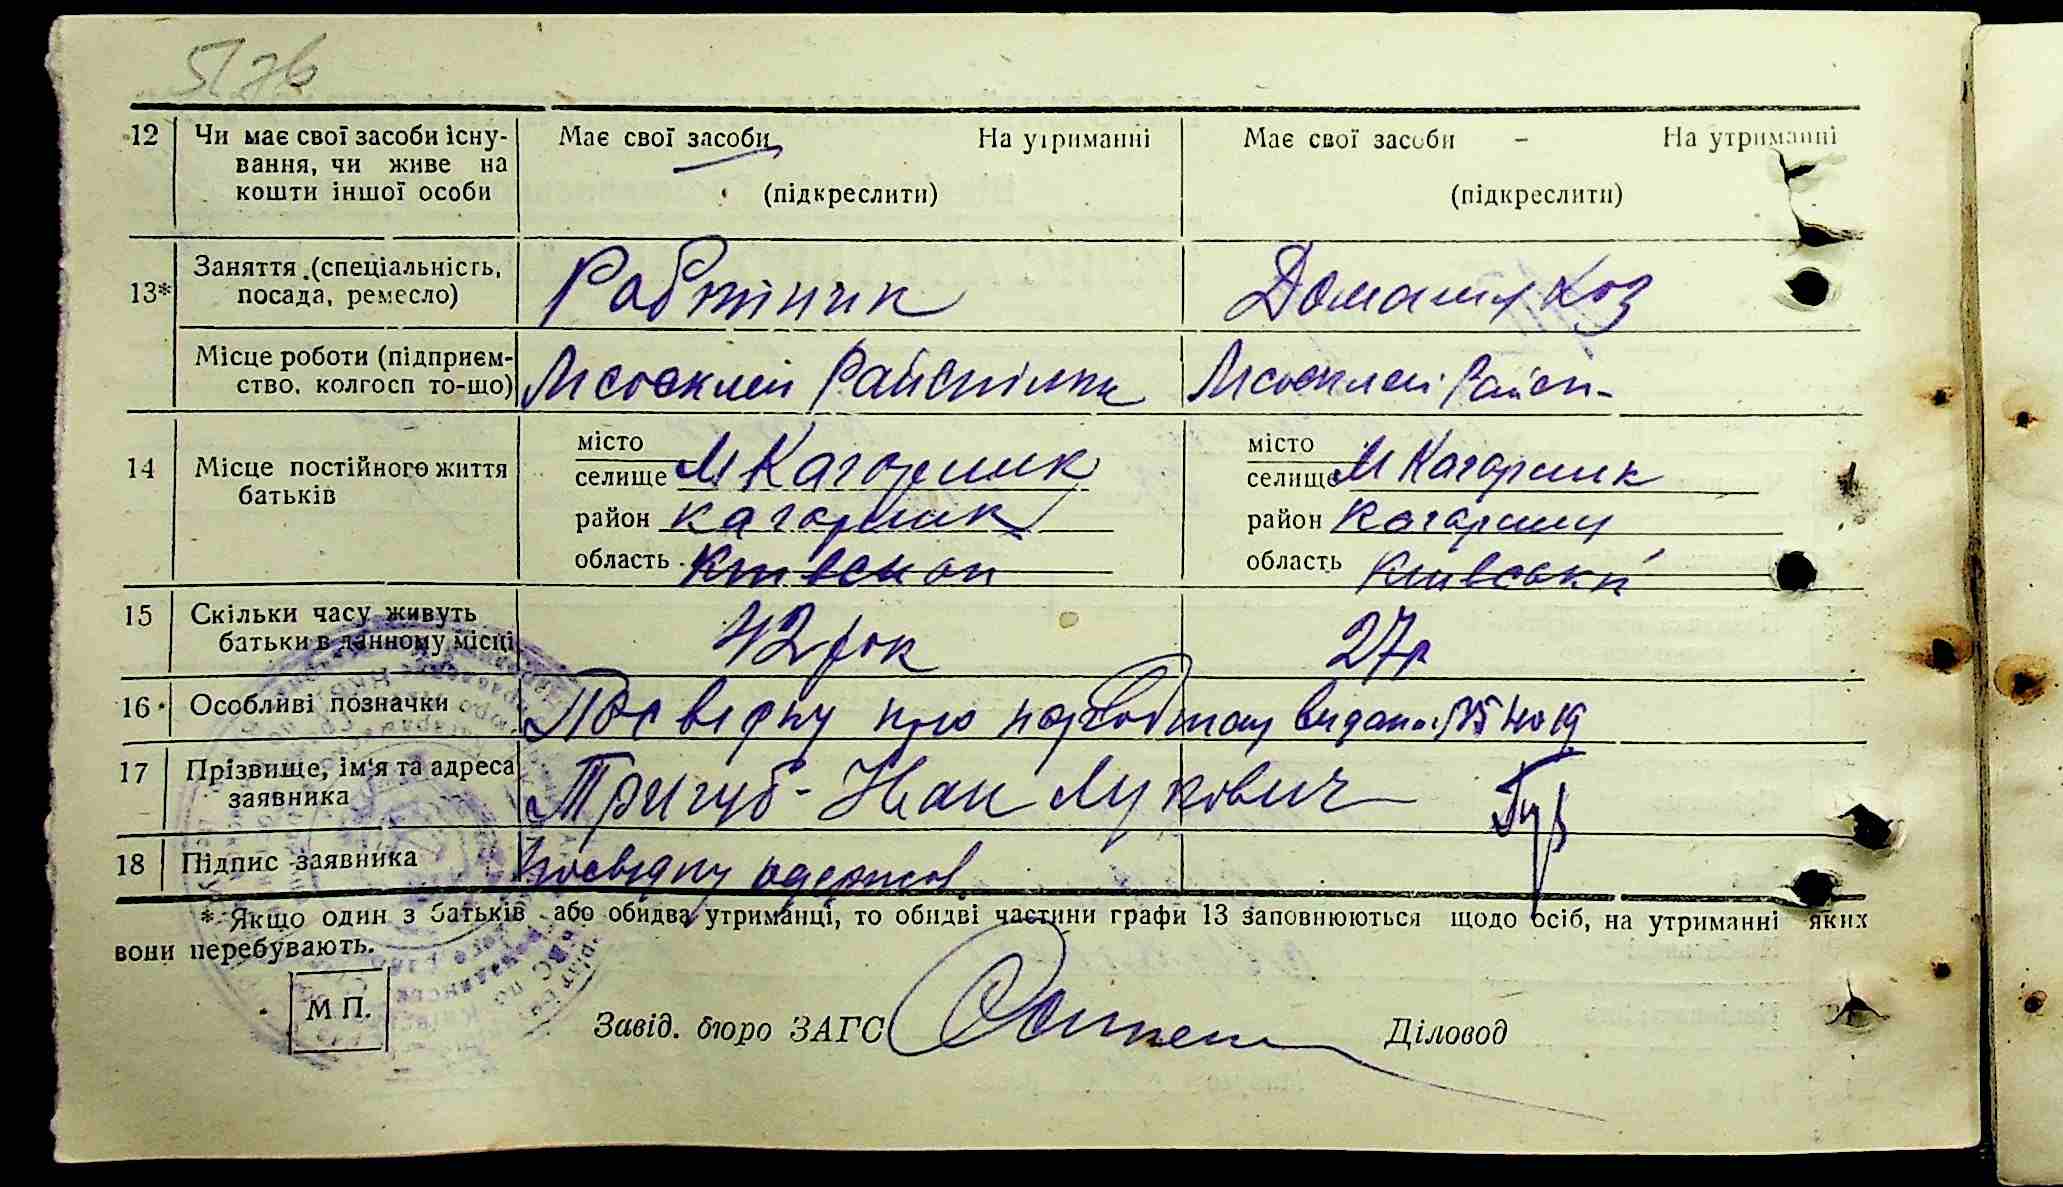 12 Чи має свої засоби існу- Має свої засоби На утриманні Має свої засоби – На утриманні
вання, чи живе на
кошти іншої особи (підкреслити) (підкреслити)
13* Заняття (спеціальність, Работник Домашня хоз
посада, ремесло)
Місце роботи (підприєм- Райспілки
ство, колгосп то-що)
14 Місце постійного життя місто місто
батьків селище М Кагорлик селище М Кагорлик
район Кагорлик район Кагорлиц
область Київской область Київський
15 Скільки часу живуть 42 рок 27 р
батьки в данному місці
16 Особливі позначки Посвідку про народження видано
17 Прізвище, ім'я та адреса Тригуб - Иван Лукович
заявника
18 Підпис заявника посвідку одержав
* Якщо один з батьків або обидва утриманці, то обидві частини графи 13 заповнюються щодо осіб, на утриманні яких
вони перебувають.
М П.
Завід. бюро ЗАГС Діловод